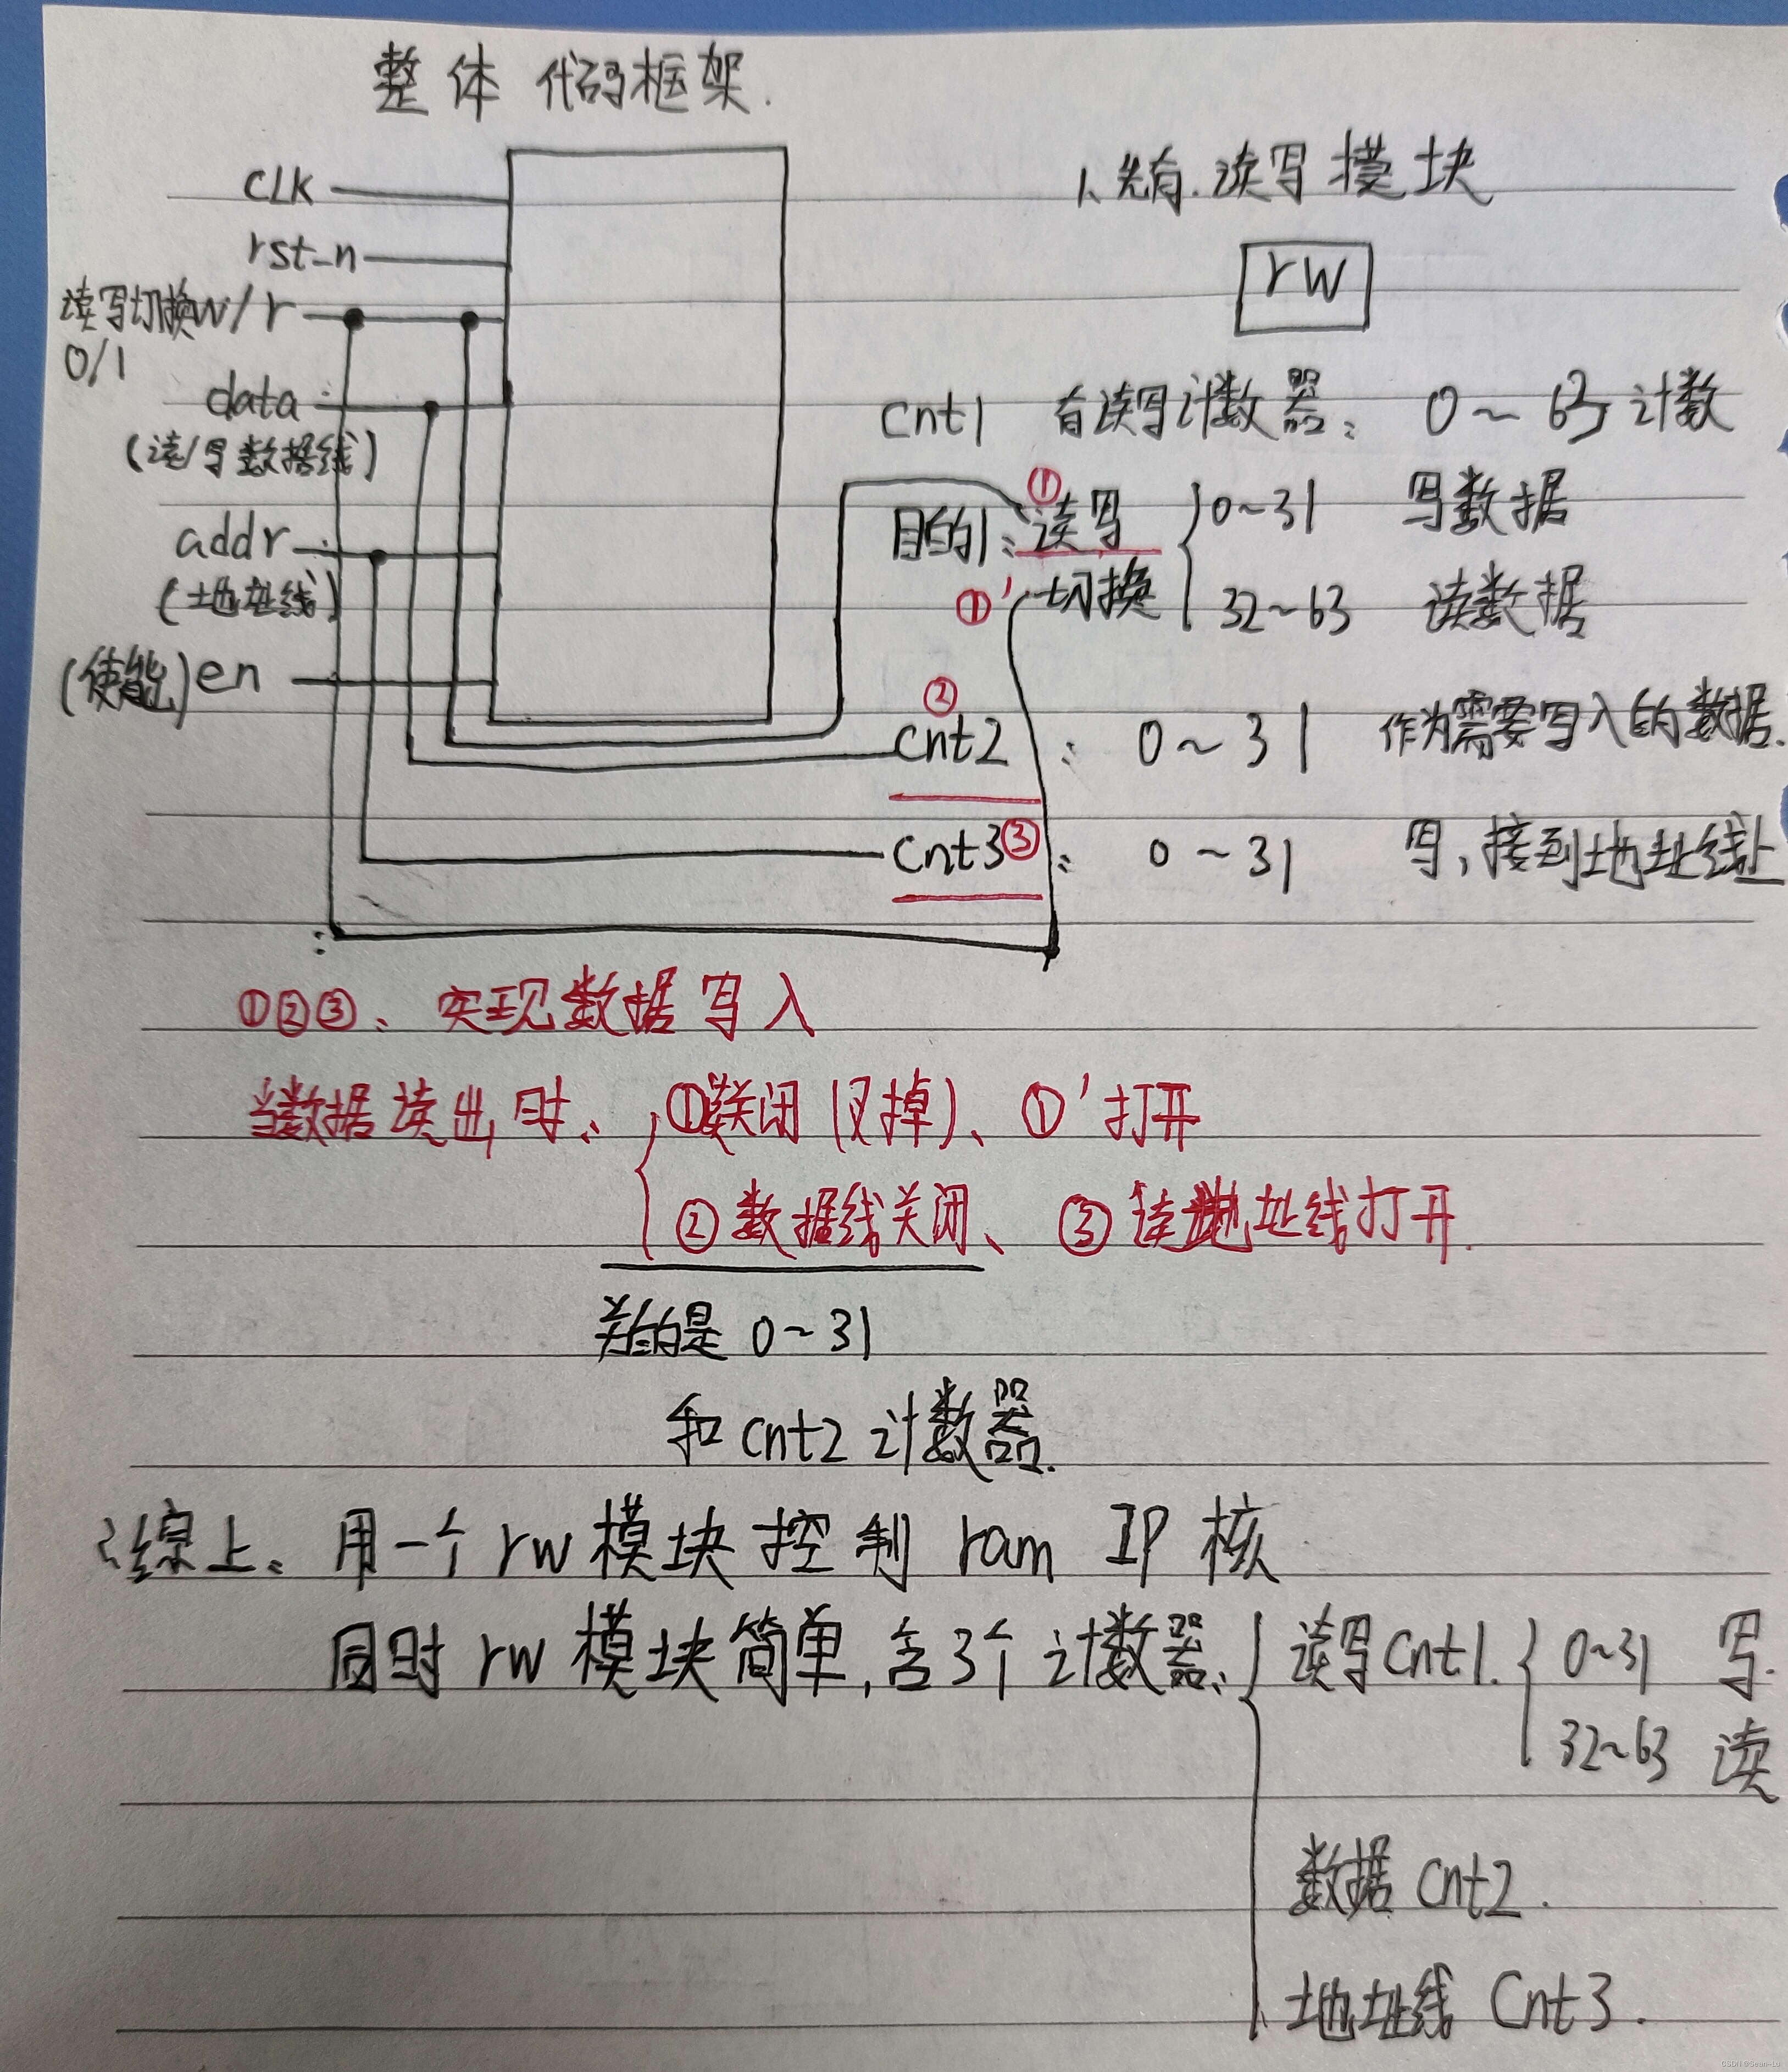 整体 代码框架.
CLK
rst_n
读写切换 w/r
0/1
data
(读/写数据线)
addr
(地址线)
(使能) en
1、先有. 读写模块
rw
cnt1 有读写计数器: 0~63计数
目的1: ① 读写 ①' 切换
0~31 写数据
32~63 读数据
② cnt2 : 0~31 作为需要写入的数据.
cnt3 ③ : 0~31 写,接到地址线上
①②③、实现数据写入
当数据读出时: ①关闭(叉掉)、①'打开
②数据线关闭、③读地址线打开.
关的是 0~31
和 cnt2 计数器.
综上、用一个 rw 模块控制 ram IP 核
同时 rw 模块简单,含3个计数器:
读写 Cnt1. 0~31 写.
32~63 读
数据 Cnt2.
地址线 Cnt3.